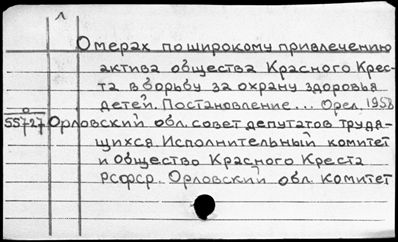 Л
О мерах по широкому привлечению
актива общества Красного Крес-
та в борьбу за охрану здоровья
детей. Постановление... Орел, 1958
О
55727 Орловский обл. совет депутатов трудя-
щихся. Исполнительный комитет
и Общество Красного Креста
РСФСР. Орловский обл. комитет